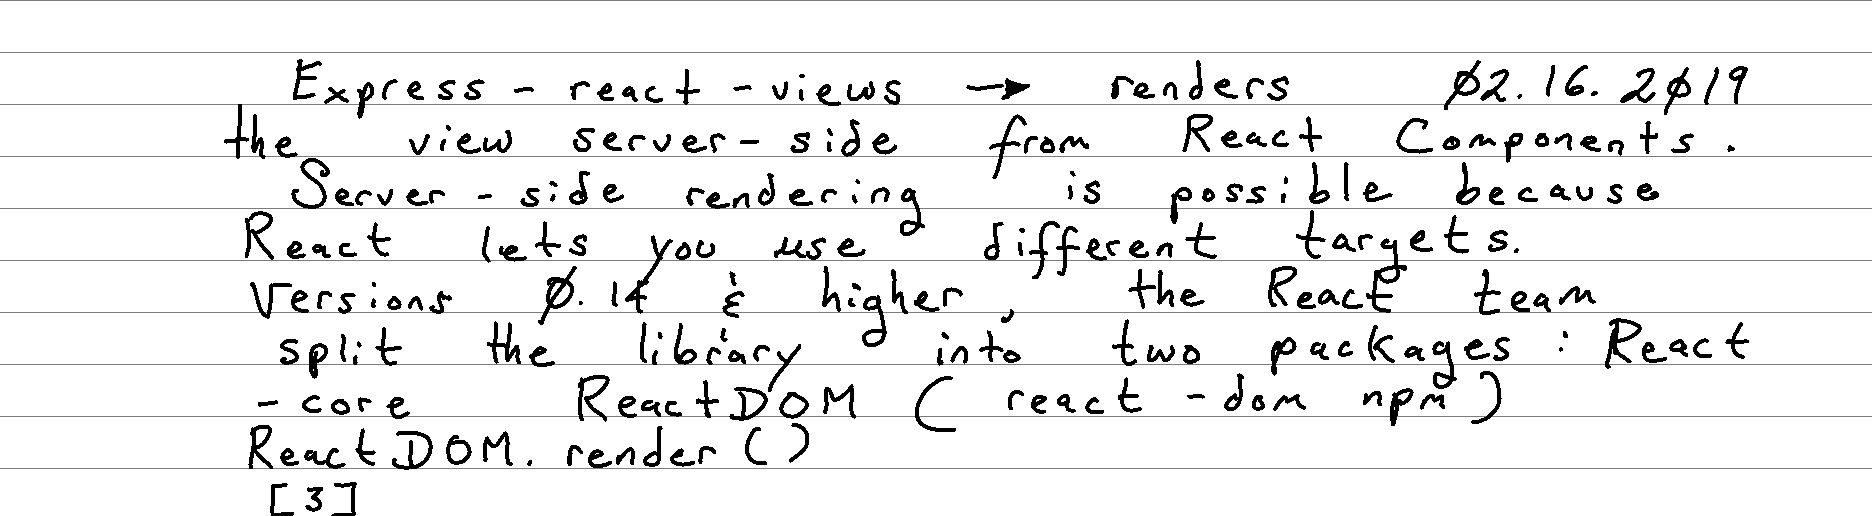 Express - react - views → renders 02.16.2019
the view server - side from React Components.
Server - side rendering is possible because
React lets you use different targets.
Versions 0.14 & higher, the React team
split the library into two packages : React
- core ReactDOM ( react - dom npm )
ReactDOM. render ()
[3]